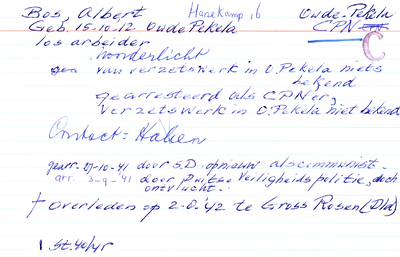 Bos, Albert Hanekamp, 6 Oude-Pekela
Geb. 15-10-12 Oude Pekela CPN
los arbeider C
Noorderlicht
van verzetswerk in O. Pekela niets
bekend
gearresteerd als CPN'er,
verzetswerk in O. Pekela niet bekend
Contact = Haken
gearr. 27-10-41 door S.D. opnieuw als communist -
arr. 3-9-'41 door Duitse Veiligheidspolitie, doch
ontvlucht.
† overleden op 2-0.'42 te Gross Rosen (Dld)
1 St. 40/yr